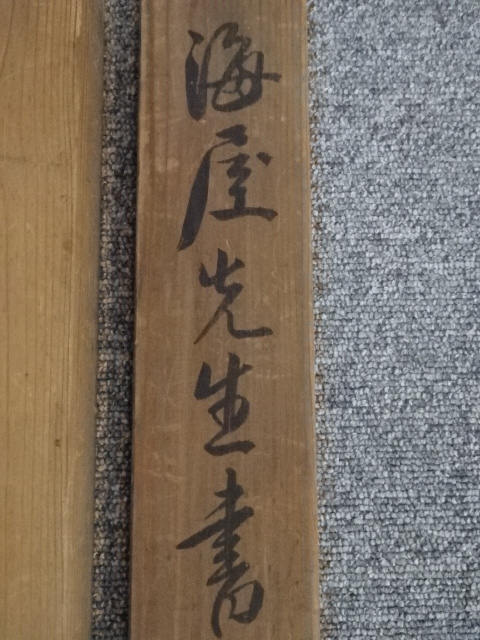 海屋先生書